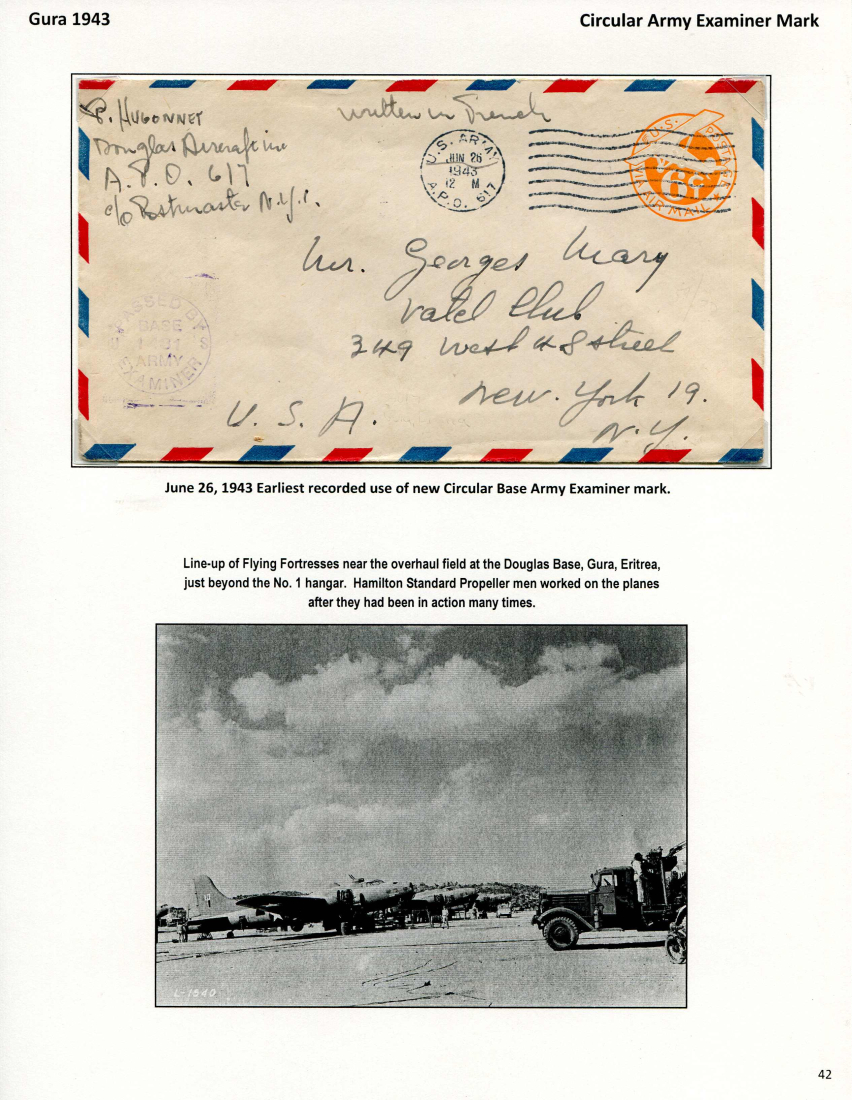 Gura 1943
Circular Army Examiner Mark
P. HUGONNET
Douglas Aircraft inc
A.P.O. 617
c/o Postmaster N.Y.C.
written in French
U.S. ARMY
JUN 26
1943
12 M
A.P.O. 617
U.S. POSTAGE
6¢
VIA AIR MAIL
Mr. Georges Mary
Vatel Club
349 West 48 street
New. York 19.
N.Y.
U. S. A.
PASSED BY
BASE
ARMY
EXAMINER
U S
June 26, 1943 Earliest recorded use of new Circular Base Army Examiner mark.
Line-up of Flying Fortresses near the overhaul field at the Douglas Base, Gura, Eritrea,
just beyond the No. 1 hangar. Hamilton Standard Propeller men worked on the planes
after they had been in action many times.
L-1540
42